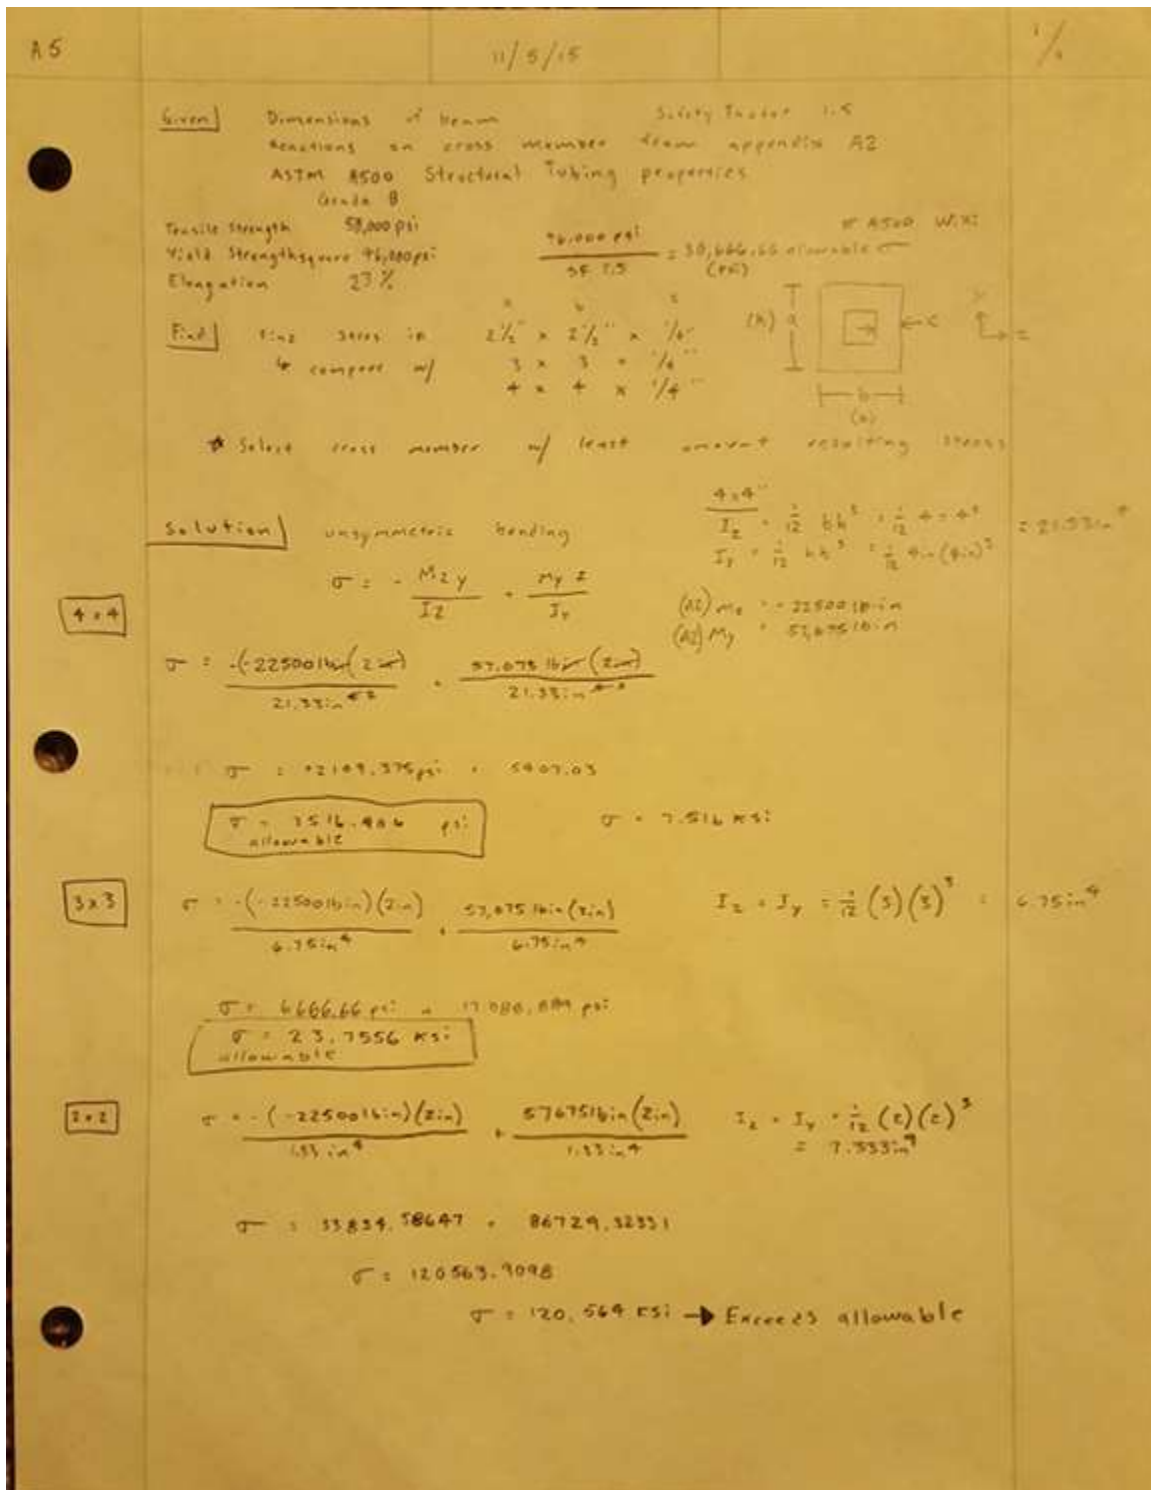 A5 11/5/15 1/1
Given Dimensions of beam Safety Factor 1.5
Reactions on cross member from appendix A2
ASTM A500 Structural Tubing properties
Grade B
Tensile Strength 58,000 psi
Yield Strength square 46,000 psi
Elongation 23%
46,000 psi / SF 1.5 = 30,666.66 allowable σ
(psi)
A500 Wiki
Find stress in 2 1/2" x 2 1/2" x 1/4"
compare w/ 3 x 3 x 1/4"
4 x 4 x 1/4"
(h) a c
b
* Select cross member w/ least amount resulting stress
Solution unsymmetric bending
4x4"
Iz = 1/12 bh³ = 1/12 4 = 4³ = 21.33in⁴
Iy = 1/12 bh³ = 1/12 4in (4in)³
σ = - Mz y / Iz + My z / Iy
(A2) Mz = -22500 lb·in
(A2) My = 57,675 lb·in
4x4
σ = -(-22500 lbin (2in) / 21.33in + 57,675 lbin (2in) / 21.33in
σ = +2109.375 psi + 5407.03
σ = 7516.406 psi
allowable
σ = 7.516 ksi
3x3
σ = -(-22500 lbin)(2in) / 6.75in⁴ + 57,675 lbin (2in) / 6.75in⁴
Iz = Iy = 1/12 (3)(3)³ = 6.75in⁴
σ = 6666.66 psi + 17.088,889 psi
σ = 23.7556 ksi
allowable
2x2
σ = -(-22500 lbin)(2in) / 1.33 in⁴ + 57675 lbin (2in) / 1.33in⁴
Iz = Iy = 1/12 (2)(2)³
= 1.333in⁴
σ = 33834.58647 + 86729.32331
σ = 120563.9098
σ = 120.564 ksi → Exceeds allowable